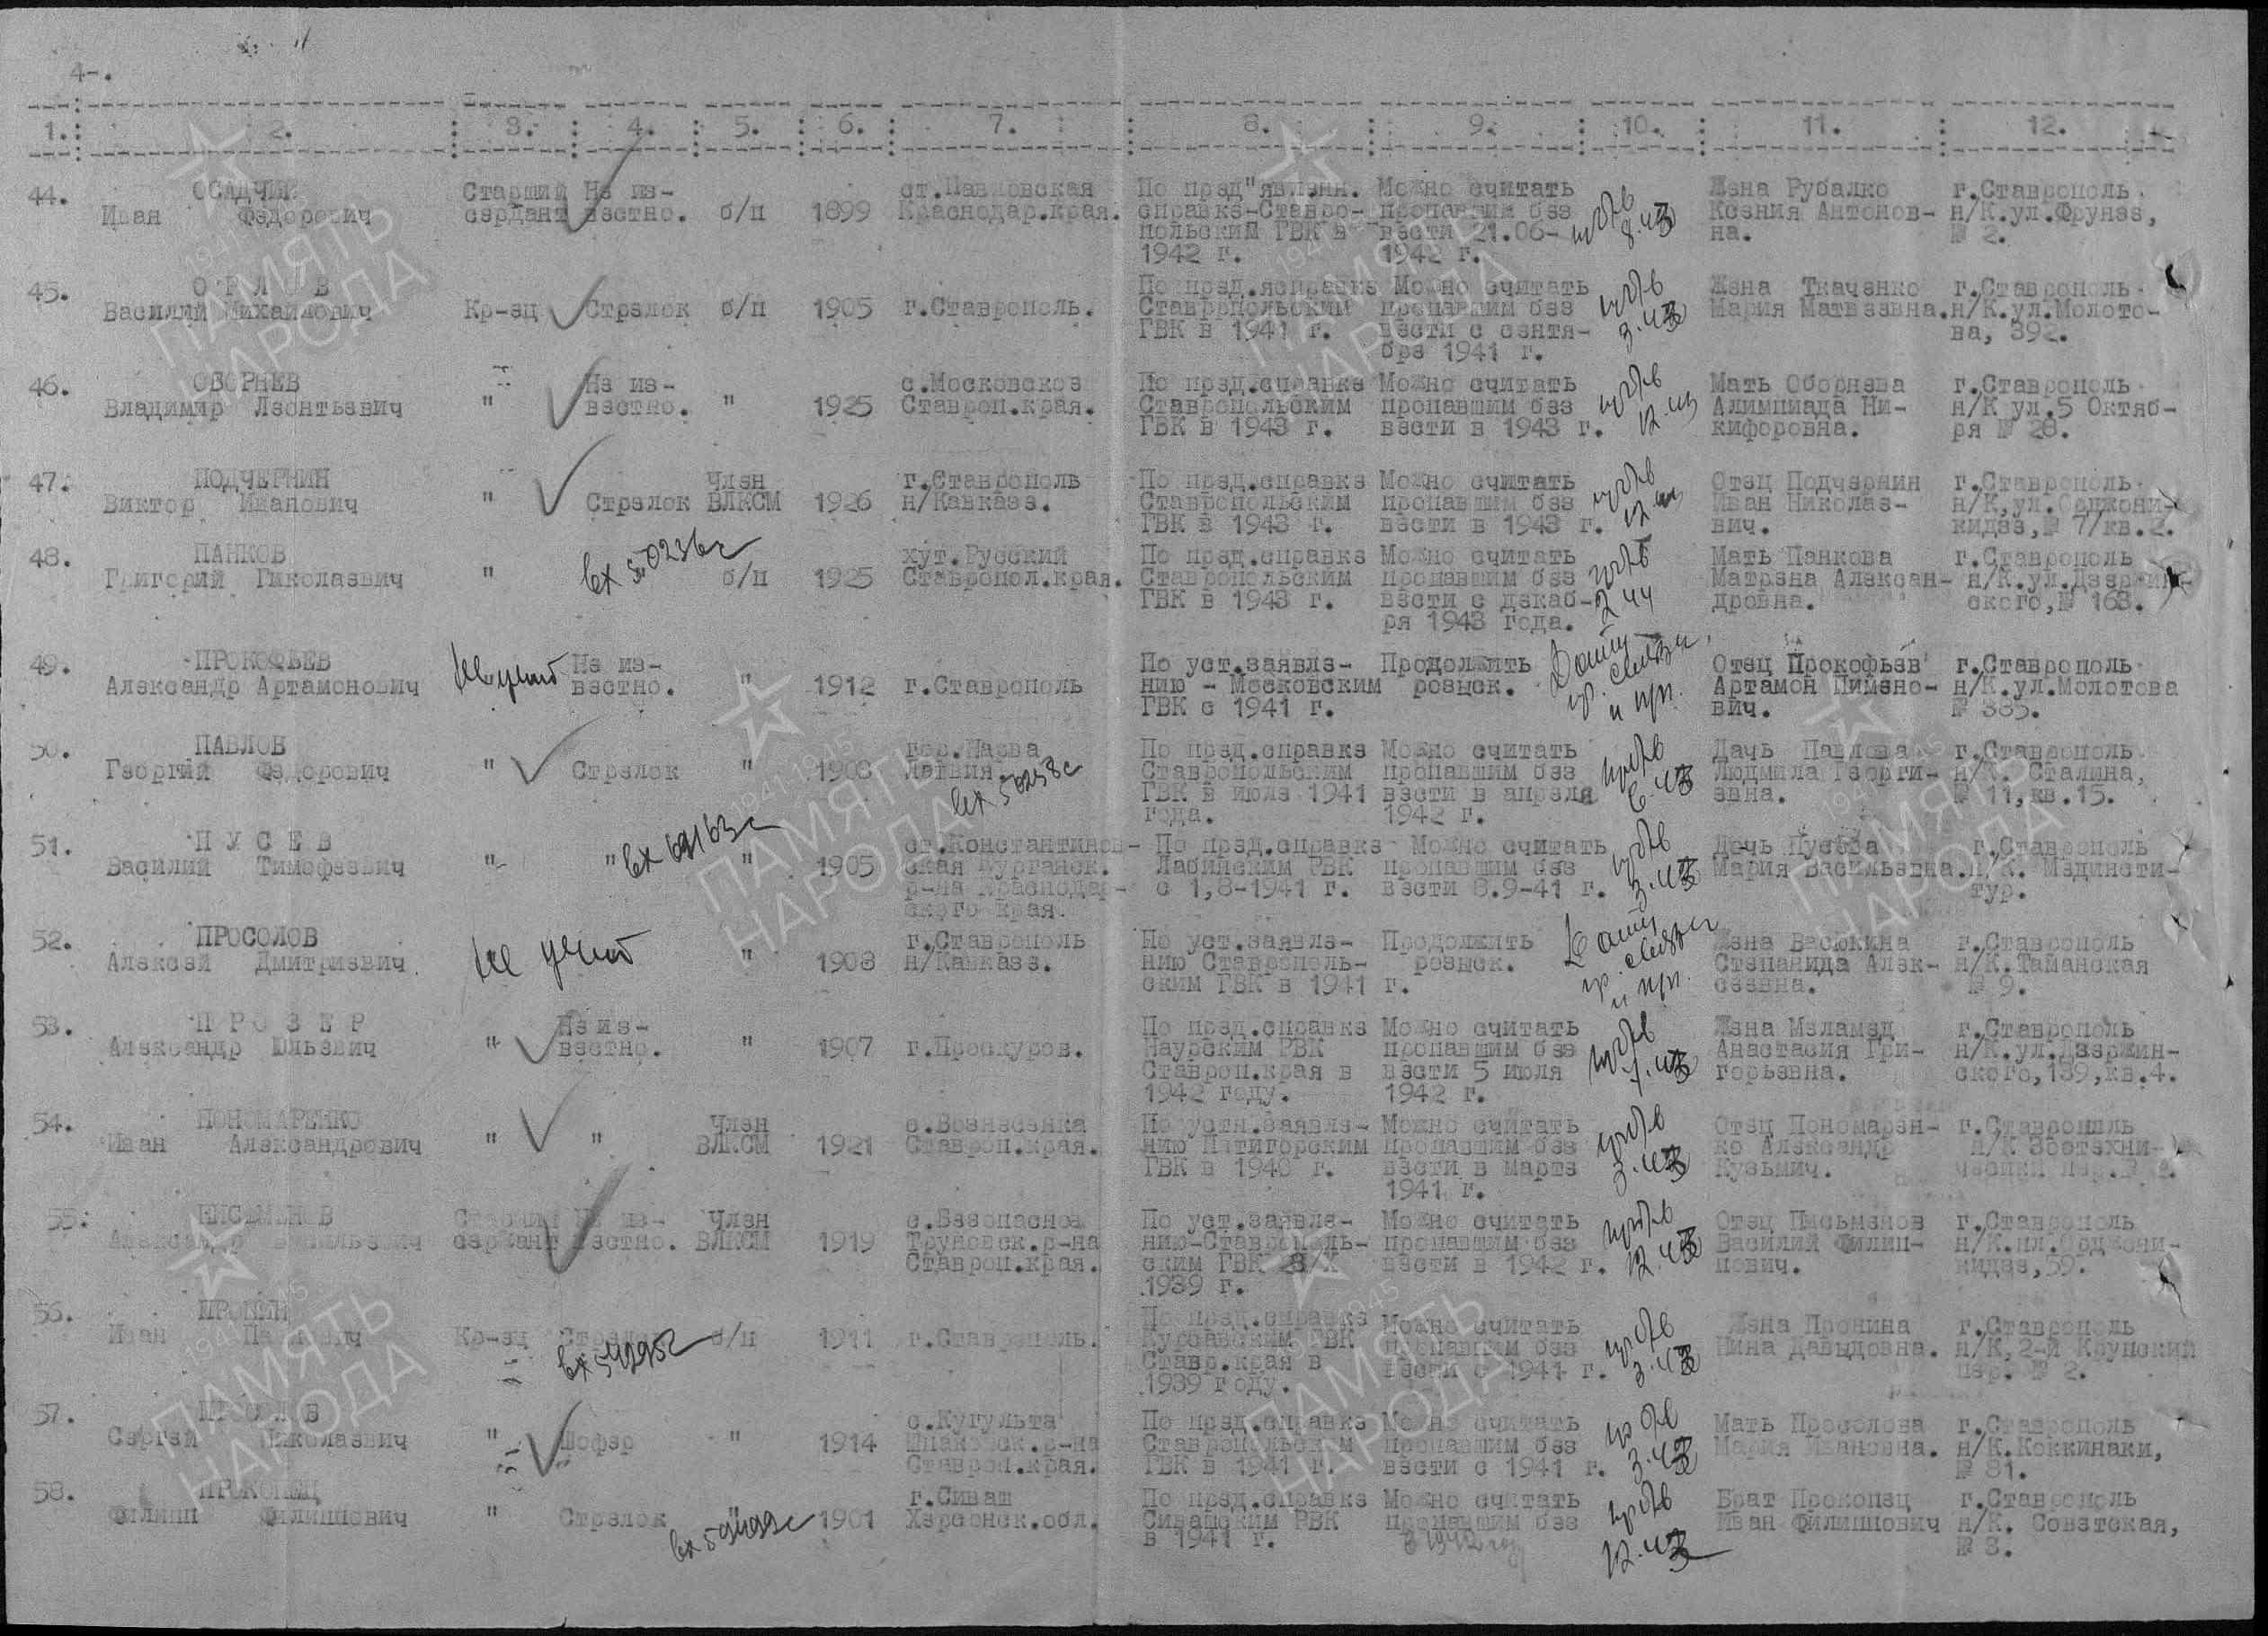 4-.
1. 2. 3. 4. 5. 6. 7. 8. 9. 10. 11. 12.
44. ОСАДЧИЙ Старший Не из- ст.Павловская По пред"явленн. Можно считать Жена Рубалко г.Ставрополь
Иван Федорович сержант вестно. б/п 1899 Краснодар.края. справке-Ставро- пропавшим без Ксения Антонов- н/К.ул.Фрунзе,
польский ГВК в вести 21.06- на. № 2.
1942 г. 1942 г.
45. ОРЛОВ По пред.справке Можно считать Жена Ткаченко г.Ставрополь
Василий Михайлович Кр-ец Стрелок б/п 1905 г.Ставрополь. Ставропольский пропавшим без Мария Матвеевна. н/К.ул.Молото-
ГВК в 1941 г. вести с сентя- ва, 392.
бре 1941 г.
46. ОБОРНЕВ " Не из- с.Московское По пред.справке Можно считать Мать Оборнева г.Ставрополь
Владимир Леонтьевич " вестно. " 1925 Ставроп.края. Ставропольским пропавшим без Алимпиада Ни- н/К ул.5 Октяб-
ГВК в 1943 г. вести в 1943 г. кифоровна. ря № 28.
47. ПОДЧЕРНИН Член г.Ставрополь По пред.справке Можно считать Отец Подчернин г.Ставрополь
Виктор Иванович " Стрелок ВЛКСМ 1926 н/Кавказе. Ставропольским пропавшим без Иван Николае- н/К,ул.Орджони-
ГВК в 1943 г. вести в 1943 г. вич. кидзе,№ 7/кв.2.
48. ПАНКОВ вх 50236с хут.Русский По пред.справке Можно считать Мать Панкова г.Ставрополь
Григорий Николаевич " б/п 1925 Ставропол.края. Ставропольским пропавшим без Матрена Алексан- н/К.ул.Дзержин-
ГВК в 1943 г. вести с декаб- дровна. ского,№ 163.
ря 1943 года.
49. ПРОКОФЬЕВ Не учит Не из- По уст.заявле- Продолжить Отец Прокофьев г.Ставрополь
Александр Артамонович вестно. " 1912 г.Ставрополь нию - Московским розыск. Артамон Пимено- н/К.ул.Молотова
ГВК с 1941 г. вич. № 385.
50. ПАВЛОВ гор.Нарва По пред.справке Можно считать Дачь Павлова г.Ставрополь
Георгий Федорович " Стрелок " 1908 Латвия Ставропольским пропавшим без Людмила Георги- н/К. Сталина,
вх 50258с ГВК в июле 1941 вести в апреля евна. № 11,кв.15.
года. 1942 г.
51. ПУСЕВ вх 69163с ст.Константинов- По пред.справке Можно считать Дочь Пусева г.Ставрополь
Василий Тимофеевич " " " 1905 ская Курганск. Лабинским РВК пропавшим без Мария Васильевна. н/К. Мединсти-
р-на Краснодар- с 1,8-1941 г. вести 8.9-41 г. тур.
ского края.
52. ПРОСОЛОВ Не учит г.Ставрополь По уст.заявле- Продолжить Жена Васюкина г.Ставрополь
Алексей Дмитриевич " 1908 н/Кавказе. нию Ставрополь- розыск. Степанида Алек- н/К.Таманская
ским ГВК в 1941 г. сеевна. № 9.
53. ПРОЗЕР Не из- По пред.справке Можно считать Жена Меламед г.Ставрополь
Александр Юльевич " вестно. " 1907 г.Проскуров. Наурским РВК пропавшим без Анастасия Гри- н/К.ул.Дзержин-
Ставроп.края в вести 5 июля горьевна. ского,139,кв.4.
1942 году. 1942 г.
54. ПОНОМАРЕНКО Член с.Вознесенка По устн.заявле- Можно считать Отец Пономарен- г.Ставрополь
Иван Александрович " " ВЛКСМ 1921 Ставроп.края. нию Пятигорским пропавшим без ко Александр н/К Зоотехни-
ГВК в 1940 г. вести в марте Кузьмич. ческий пер.
1941 г.
55. ПИСЬМЕНОВ Старший Не из- Член с.Безопасное По уст.заявле- Можно считать Отец Письменов г.Ставрополь
Александр Васильевич сержант вестно. ВЛКСМ 1919 Труновск.р-на нию-Ставрополь- пропавшим без Василий Филип- н/К.пл.Орджони-
Ставроп.края. ским ГВК 28/X вести в 1942 г. пович. кидзе,59.
1939 г.
56. ПРОНИН По пред.справке Можно считать Жена Пронина г.Ставрополь
Иван Кр-ец Стрелок б/п 1911 г.Ставрополь. Курсавским РВК пропавшим без Нина Давыдовна. н/К,2-й Крупский
вх 54295с Ставр.края в вести с 1941 г. пер. № 2.
1939 году.
57. ПРОСОЛОВ с.Кугульта По пред.справке Можно считать Мать Просолова г.Ставрополь
Сергей Николаевич " Шофер " 1914 Шпаковск.р-на Ставропольском пропавшим без Мария Ивановна. н/К.Коккинаки,
Ставроп.края. ГВК в 1941 г. вести с 1941 г. № 81.
58. ПРОКОПЕЦ г.Сиваш По пред.справке Можно считать Брат Прокопец г.Ставрополь
Филипп Филиппович " Стрелок " 1901 Херсонск.обл. Сивашским РВК пропавшим без Иван Филиппович н/К. Советская,
в 1941 г. в 1942 году № 8.
ПАМЯТЬ НАРОДА
1941-1945